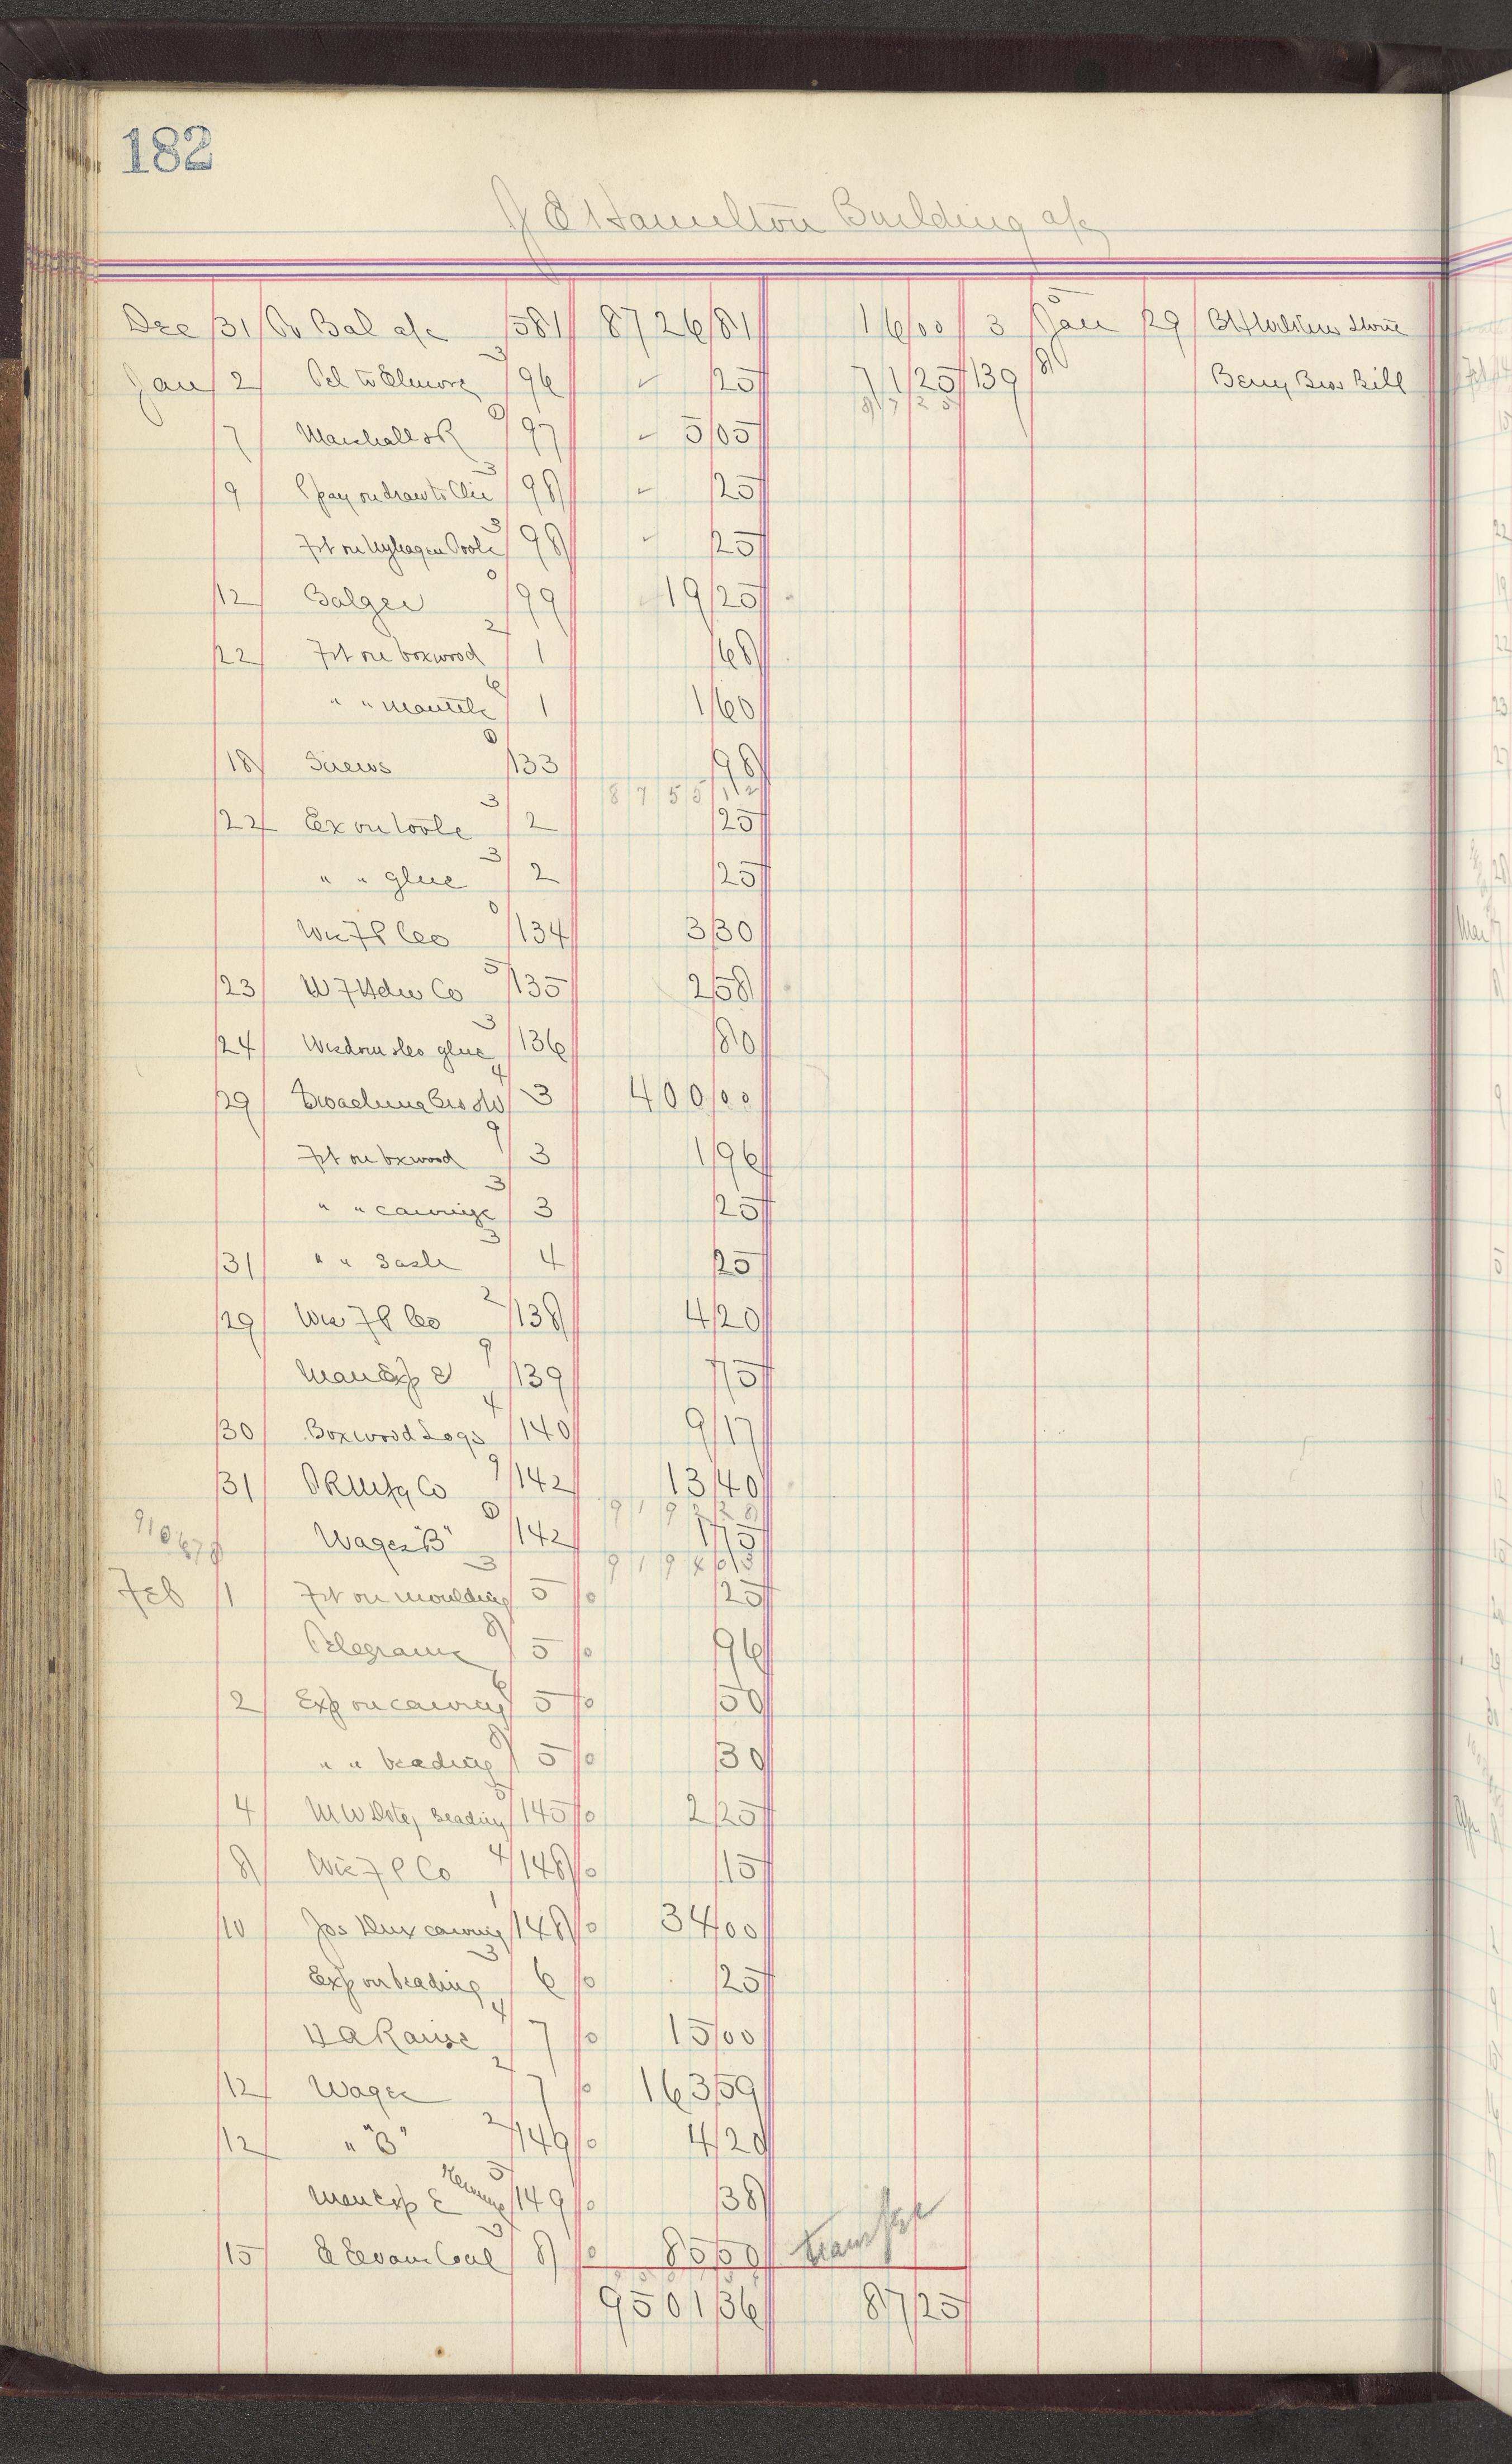 182
J E Hamilton Building a/c
Dec 31 To Bal a/c 581 8726 81 16 00 3 Jan 29 Stone
Jan 2 Tel to Elmore 3 96 ✓ 25 71 25 139 8 Berry Bros Bill
87 25
7 Marshall & R 0 97 ✓ 5 05
9 on draw to Chi 3 98 ✓ 25
Frt on Tools 3 98 ✓ 25
12 0 99 19 25
22 Frt on boxwood 2 1 68
" " mantels 6 1 1 60
18 Screws 0 133 98
8755 12
22 Ex on tools 3 2 25
" " glue 3 2 25
Wis F P Co 0 134 3 30
23 W F Hdw Co 5 135 2 58
24 glue 3 136 80
29 Bros 4 3 400 00
Frt on bxwood 9 3 1 96
" " carvings 3 3 25
31 " " Sash 3 4 25
29 Wis F P Co 2 138 4 20
Man Exp E 9 139 75
30 Boxwood Logs 4 140 9 17
31 T R Mfg Co 9 142 13 40
9192 28
Wages "B" 0 142 1 75
9194 03
Feb 1 Frt on moulding 3 5 25
Telegrams 8 5 96
2 Exp on carvings 6 5 50
" " beading 8 5 30
4 M W Beading 5 145 2 25
8 Wis F P Co 4 148 15
10 Jos Dux carving 1 148 34 00
Exp on beading 3 6 25
H A 4 7 15 00
12 Wages 2 7 163 59
12 " "B" 2 149 4 20
Man Exp E 5 149 38
15 E Evans Coal 3 8 85 50 transfer
9501 36 87 25